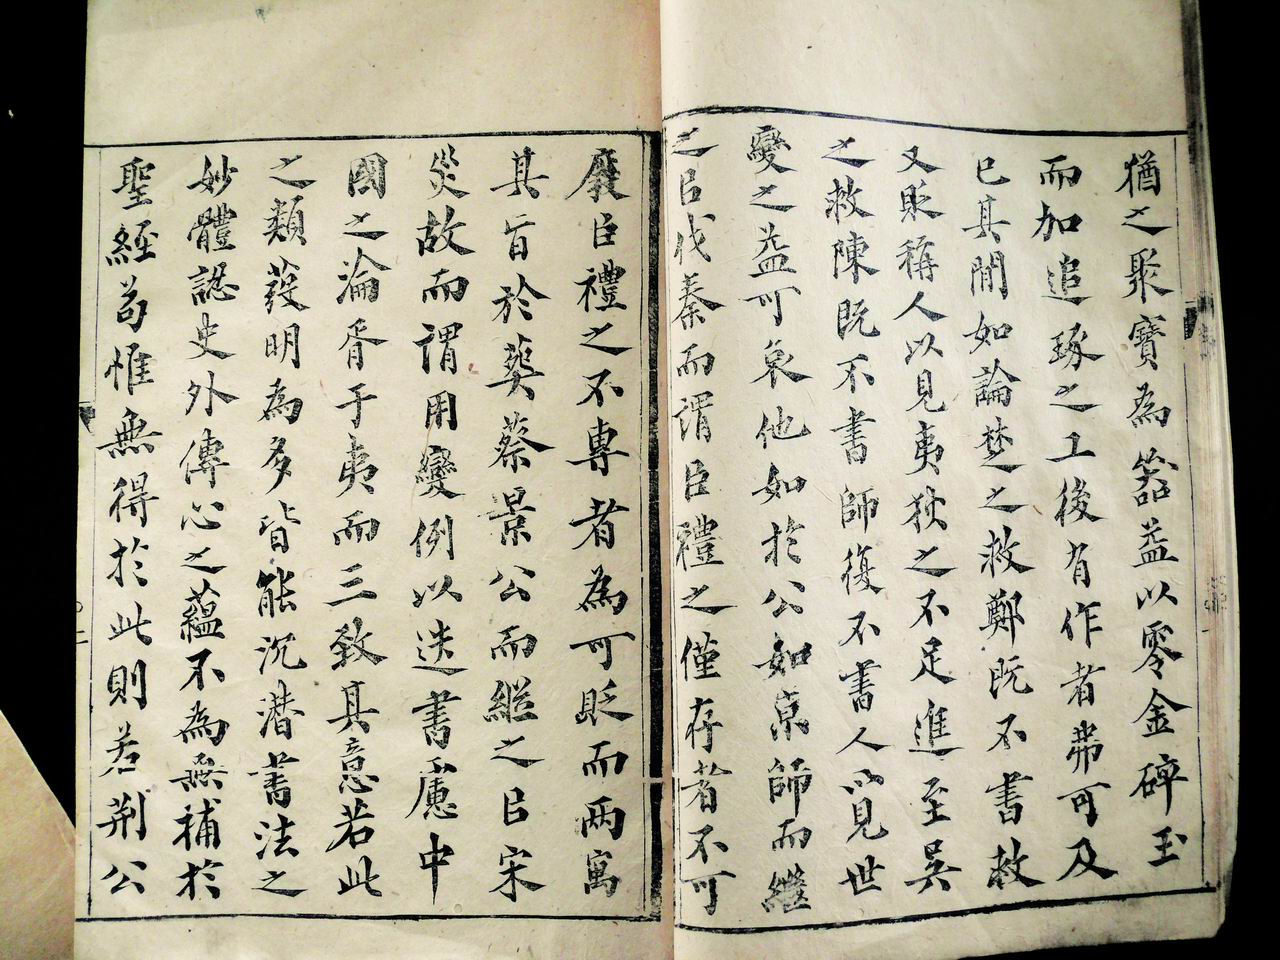 猶之聚寶為器益以零金碎玉
而加追琢之工後有作者弗可及
已其間如論楚之救鄭既不書救
又貶稱人以見夷狄之不足進至吳
之救陳既不書師復不書人以見世
變之益可哀他如於公如京師而繼
之㠯伐秦而謂臣禮之僅存者不可
廢臣禮之不專者為可貶而兩寓
其旨於葬蔡景公而繼之㠯宋
災故而謂用變例以迭書慮中
國之淪胥于夷而三致其意若此
之類發明為多皆能沉潛書法之
妙體認史外傳心之蘊不為無補於
聖經苟惟無得於此則若荆公